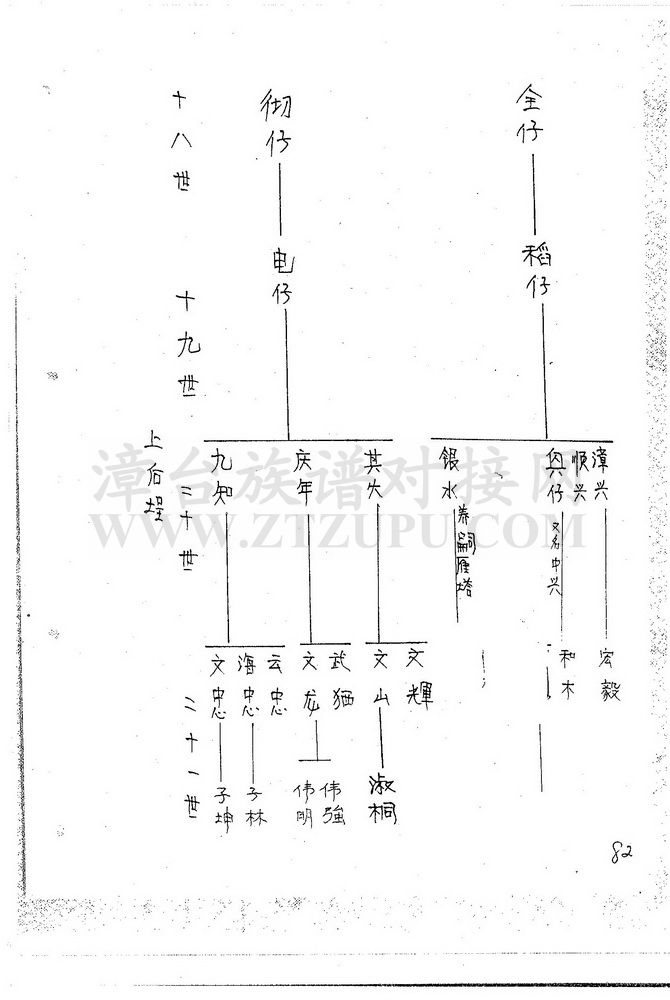 十八世
彻仔
全仔
十九世
电仔
稻仔
上后埕
二十世
九知
庆年
其火
银水
养嗣雁塔
兴仔
又名中兴
顺兴
漳兴
漳台族谱对接网
WWW.ZTZUPU.COM
二十一世
文忠
海忠
云忠
文龙
武
文山
文輝
和木
宏毅
子坤
子林
伟明
伟強
淑桐
82